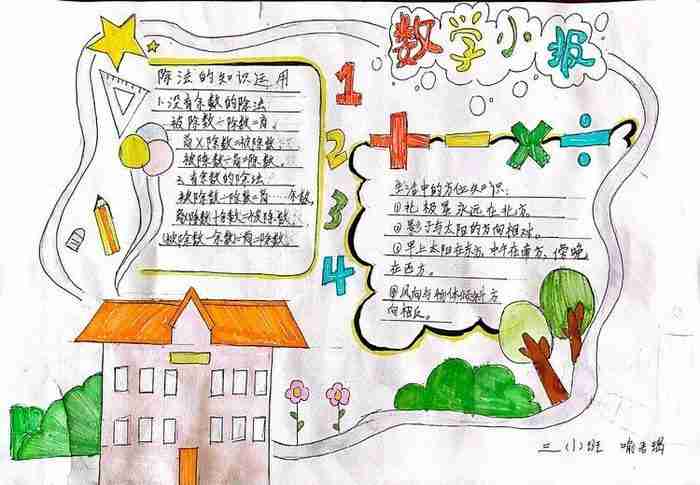 数学小报
除法的知识运用
1.没有余数的除法
被除数÷除数=商。
商×除数=被除数。
被除数÷商=除数。
2.有余数的除法
被除数÷除数=商……余数。
商×除数+余数=被除数。
(被除数-余数)÷商=除数。
1
2
3
4
+ - × ÷
生活中的方位知识:
①北极星永远在北方。
②影子与太阳的方向相对。
③早上太阳在东方,中午在南方,傍晚
在西方。
④风向与物体倾斜方
向相反。
三(1)班